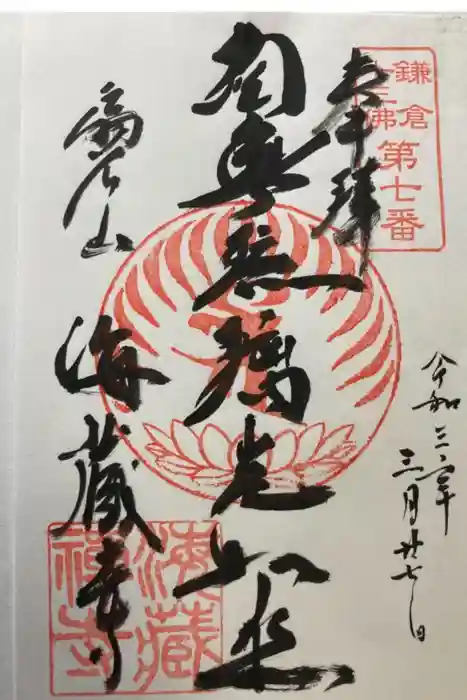 鎌倉
十三佛
第七番
奉拝
令和三年
三月廿七日
光如来
扇谷山
海蔵寺
海藏
禪寺